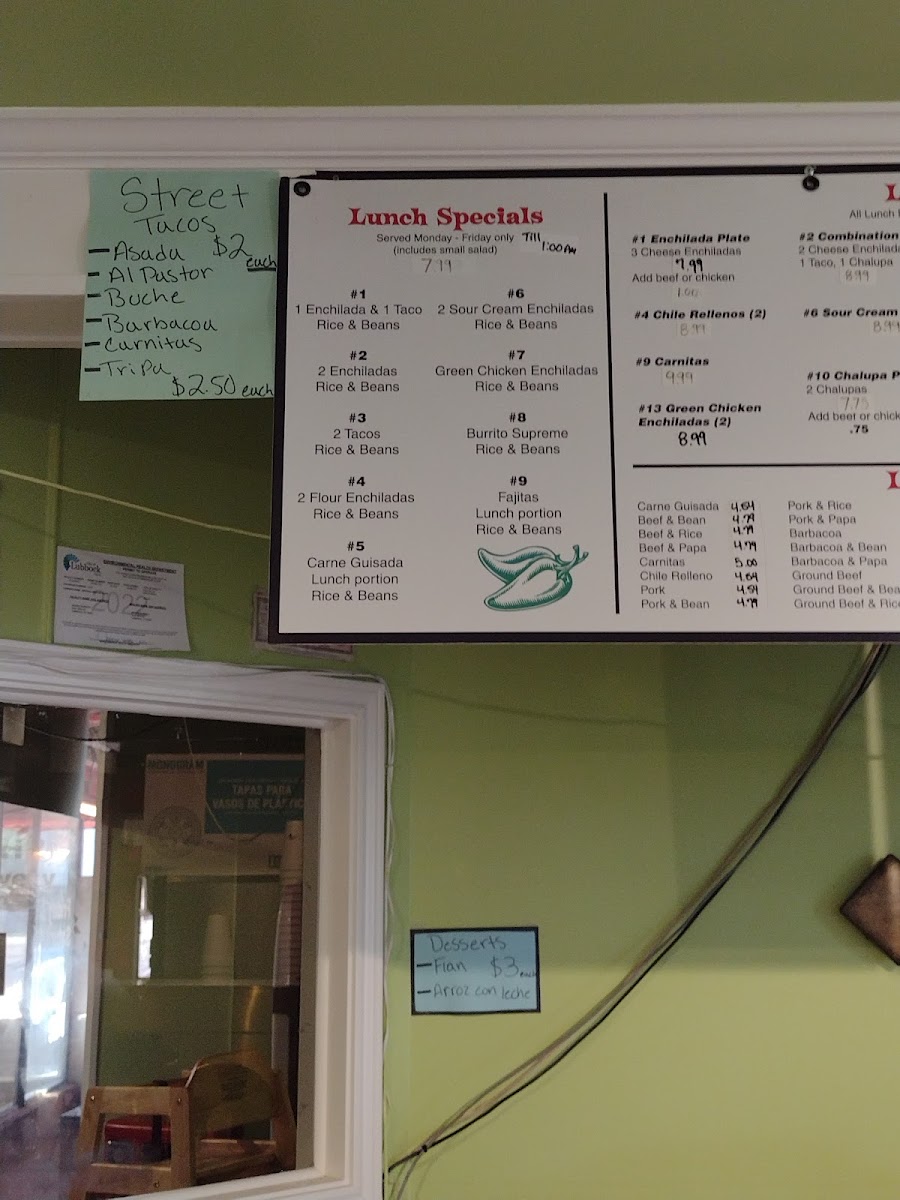 Street
Tacos
- Asada $2 each
- Al Pastor
- Buche
- Barbacoa
- Carnitas
- Tripa
$2.50 each
Lunch Specials
Served Monday - Friday only Till
(includes small salad)
#1
1 Enchilada & 1 Taco
Rice & Beans
#2
2 Enchiladas
Rice & Beans
#3
2 Tacos
Rice & Beans
#4
2 Flour Enchiladas
Rice & Beans
#5
Carne Guisada
Lunch portion
Rice & Beans
#6
2 Sour Cream Enchiladas
Rice & Beans
#7
Green Chicken Enchiladas
Rice & Beans
#8
Burrito Supreme
Rice & Beans
#9
Fajitas
Lunch portion
Rice & Beans
L
All Lunch
#1 Enchilada Plate
3 Cheese Enchiladas
7.99
Add beef or chicken
1.00
#4 Chile Rellenos (2)
8.99
#9 Carnitas
9.99
#13 Green Chicken
Enchiladas (2)
8.99
#2 Combination
2 Cheese Enchilada
1 Taco, 1 Chalupa
8.99
#6 Sour Cream
8.99
#10 Chalupa P
2 Chalupas
7.75
Add beef or chick
.75
Carne Guisada
Beef & Bean 4.79
Beef & Rice 4.79
Beef & Papa 4.79
Carnitas 5.00
Chile Relleno
Pork
Pork & Bean 4.79
Pork & Rice
Pork & Papa
Barbacoa
Barbacoa & Bean
Barbacoa & Papa
Ground Beef
Ground Beef & Bea
Ground Beef & Rice
Lubbock
ENVIRONMENTAL HEALTH DEPARTMENT
MONOGRAM
TAPAS PARA
VASOS DE PLÁSTIC
Desserts
- Flan $3 each
- Arroz con leche